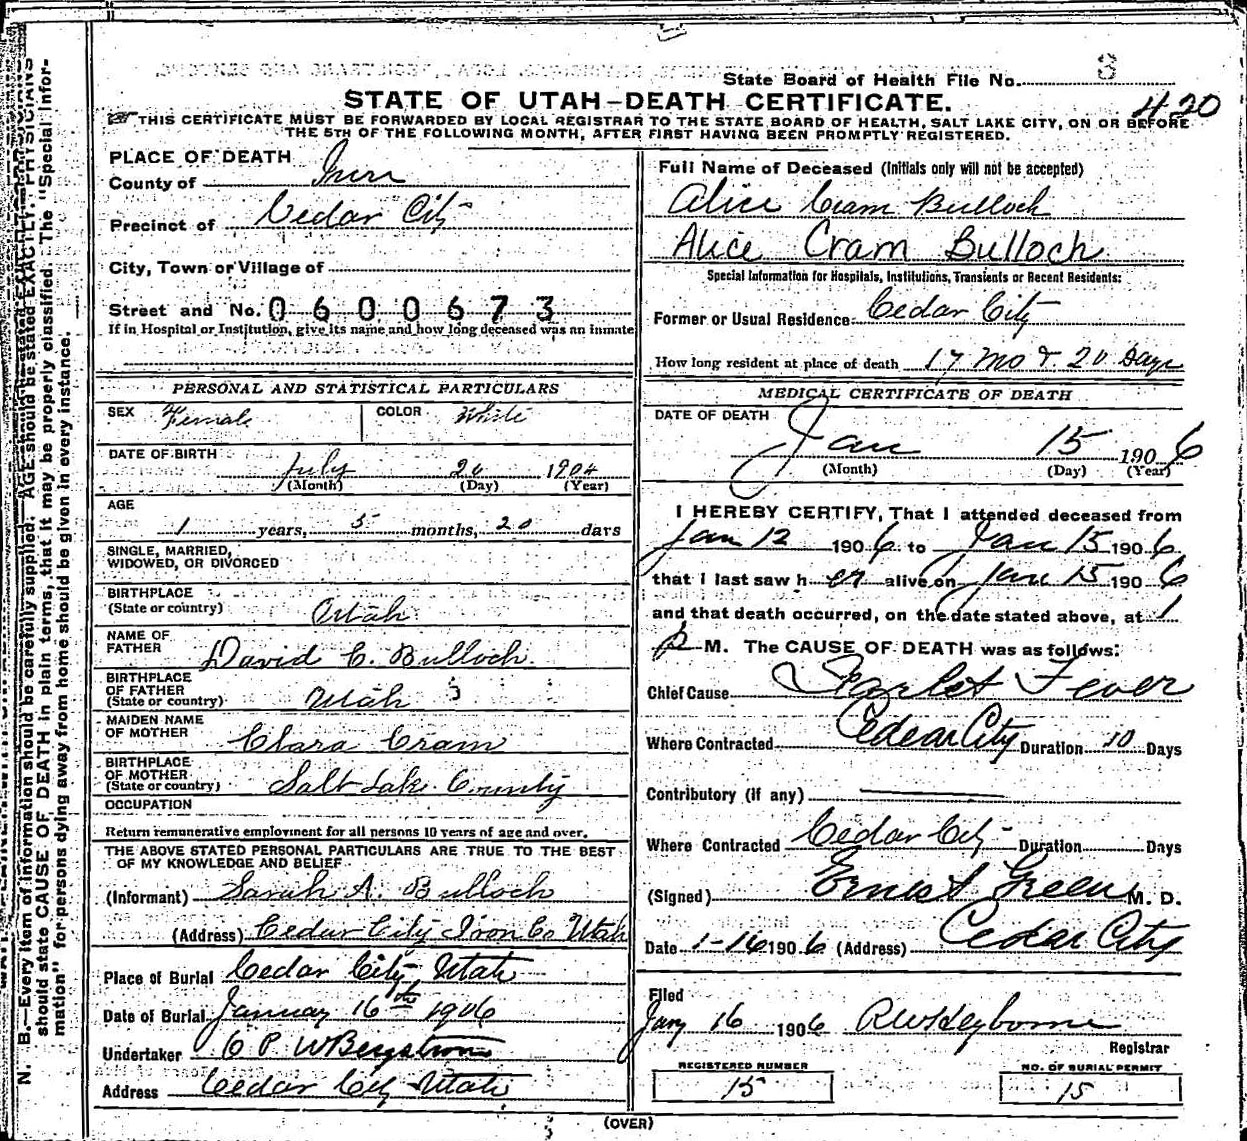 State Board of Health File No. 3
STATE OF UTAH—DEATH CERTIFICATE.
420
THIS CERTIFICATE MUST BE FORWARDED BY LOCAL REGISTRAR TO THE STATE BOARD OF HEALTH, SALT LAKE CITY, ON OR BEFORE
THE 5TH OF THE FOLLOWING MONTH, AFTER FIRST HAVING BEEN PROMPTLY REGISTERED.
PLACE OF DEATH
County of Iron
Precinct of Cedar City
City, Town or Village of
Street and No. 0600673
If in Hospital or Institution, give its name and how long deceased was an inmate
PERSONAL AND STATISTICAL PARTICULARS
SEX Female COLOR White
DATE OF BIRTH
July 20 1904
(Month) (Day) (Year)
AGE
1 years, 5 months, 20 days
SINGLE, MARRIED,
WIDOWED, OR DIVORCED
BIRTHPLACE
(State or country) Utah
NAME OF
FATHER David C. Bulloch
BIRTHPLACE
OF FATHER
(State or country) Utah
MAIDEN NAME
OF MOTHER Clara Cram
BIRTHPLACE
OF MOTHER
(State or country) Salt Lake County
OCCUPATION
Return remunerative employment for all persons 10 years of age and over.
THE ABOVE STATED PERSONAL PARTICULARS ARE TRUE TO THE BEST
OF MY KNOWLEDGE AND BELIEF
(Informant) Sarah A. Bulloch
(Address) Cedar City Iron Co Utah
Place of Burial Cedar City Utah
Date of Burial January 16th 1906
Undertaker C P W Bergstrom
Address Cedar City Utah
Full Name of Deceased (Initials only will not be accepted)
Alice Cram Bulloch
Alice Cram Bulloch
Special Information for Hospitals, Institutions, Transients or Recent Residents:
Former or Usual Residence Cedar City
How long resident at place of death 17 Mo & 20 Days
MEDICAL CERTIFICATE OF DEATH
DATE OF DEATH
Jan 15 1906
(Month) (Day) (Year)
I HEREBY CERTIFY, That I attended deceased from
Jan 12 1906 to Jan 15 1906
that I last saw her alive on Jan 15 1906
and that death occurred, on the date stated above, at 1
P M. The CAUSE OF DEATH was as follows:
Chief Cause Scarlet Fever
Where Contracted Cedar City Duration 10 Days
Contributory (if any)
Where Contracted Cedar City Duration Days
(Signed) Ernest Green M. D.
Date 1-16 1906 (Address) Cedar City
Filed
Jany 16 1906
Registrar
REGISTERED NUMBER
15
NO. OF BURIAL PERMIT
15
(OVER)
N. B.—Every item of information should be carefully supplied. AGE should be stated EXACTLY. PHYSICIANS
should state CAUSE OF DEATH in plain terms, that it may be properly classified. The "Special Infor-
mation" for persons dying away from home should be given in every instance.